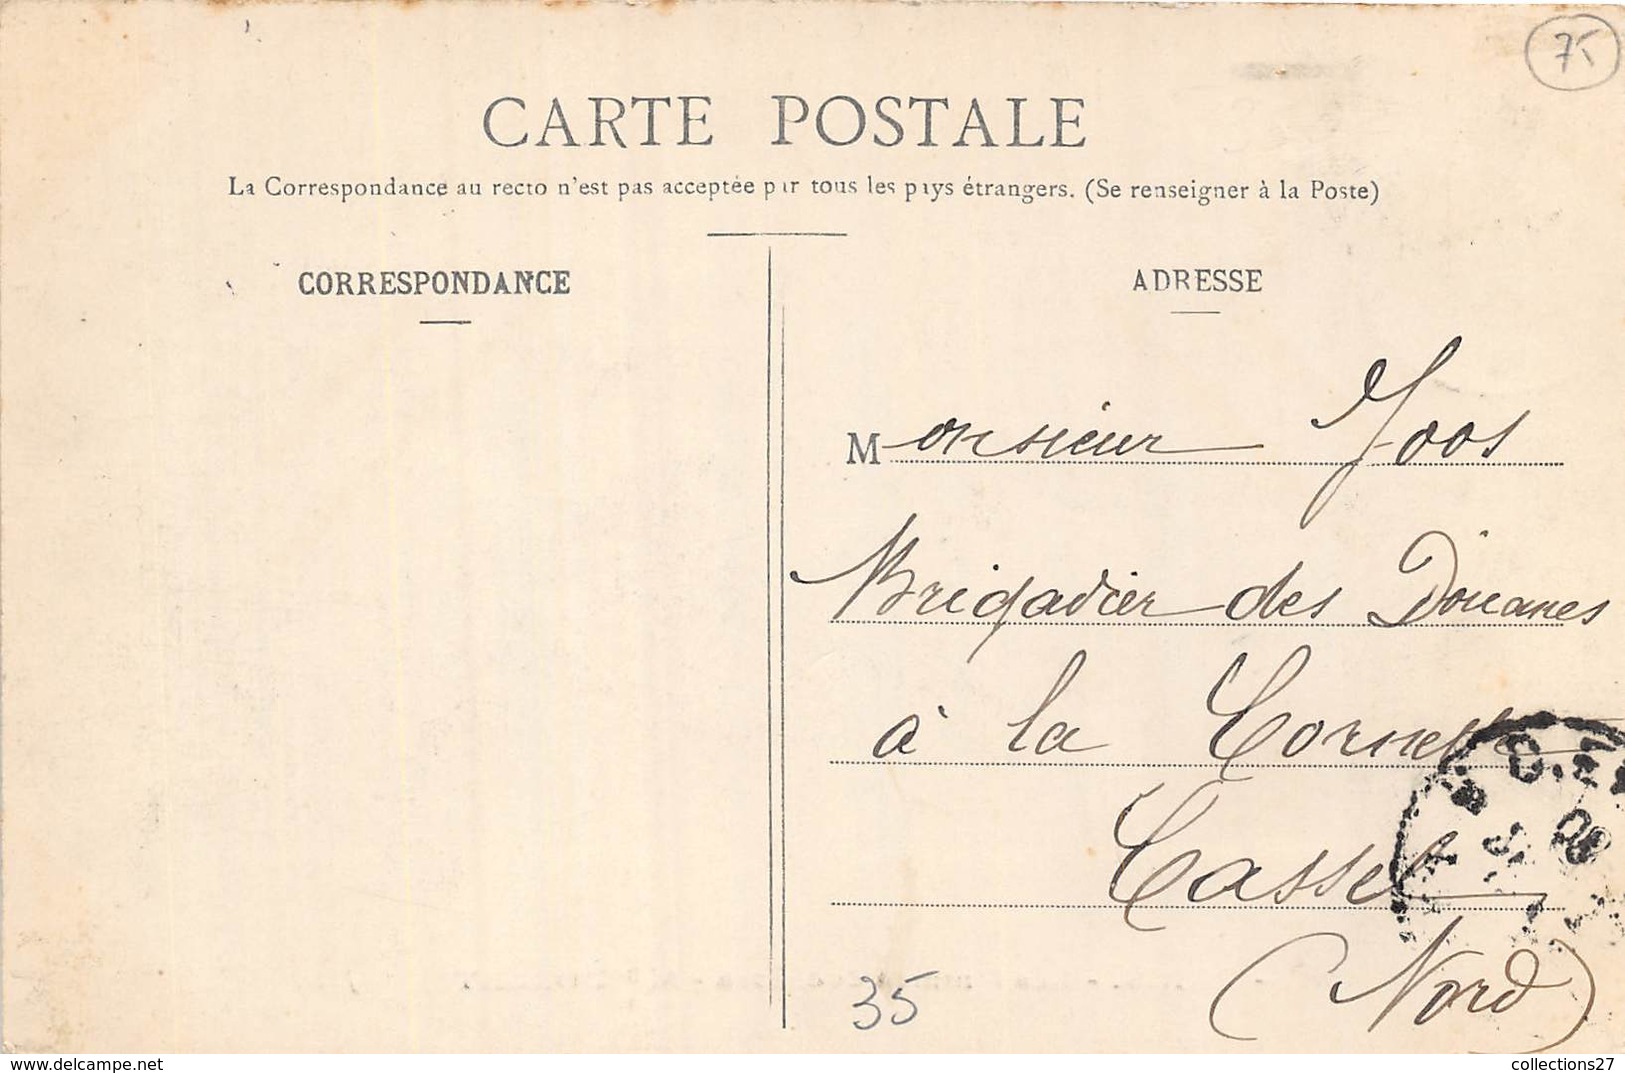 75
CARTE POSTALE
La Correspondance au recto n'est pas acceptée par tous les pays étrangers. (Se renseigner à la Poste)
CORRESPONDANCE
ADRESSE
Monsieur Joos
Brigadier des Douanes
à la Cornette
Cassel
(Nord)
35
www.delcampe.net
collections27